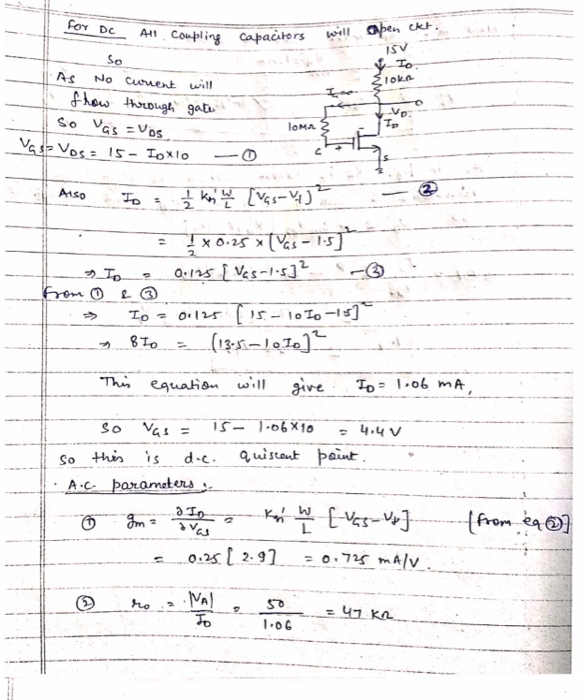 For DC All Coupling Capacitors will open ckt.
So
As No current will
flow through gate
So VGS = VDS
VGS = VDS = 15 - ID×10 — ①
15V
ID
10KΩ
IG=0
VD
10MΩ
ID
G + -
S
Also ID = 1/2 Kn' W/L [VGS-Vt]² — ②
= 1/2 × 0.25 × [VGS - 1.5]²
⇒ ID = 0.125 [VGS-1.5]² — ③
from ① & ③
⇒ ID = 0.125 [15 - 10ID - 15]²
⇒ 8ID = (13.5 - 10ID]²
This equation will give ID = 1.06 mA,
So VGS = 15 - 1.06×10 = 4.4V
So this is d.c. quiscent point.
A.C. parameters :.
① gm = ∂ID/∂VGS = Kn' W/L [VGS-Vt] [from eq ②]
= 0.25 [2.9] = 0.725 mA/V.
② ro = |VA|/ID = 50/1.06 = 47 KΩ